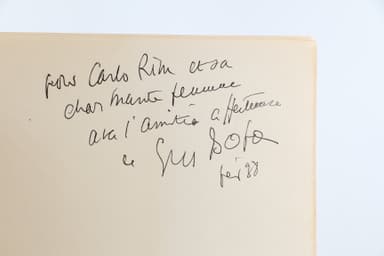 pour Carlo Rim et sa
charmante femme
avec l'amitié affectueuse
de Gus Bofa